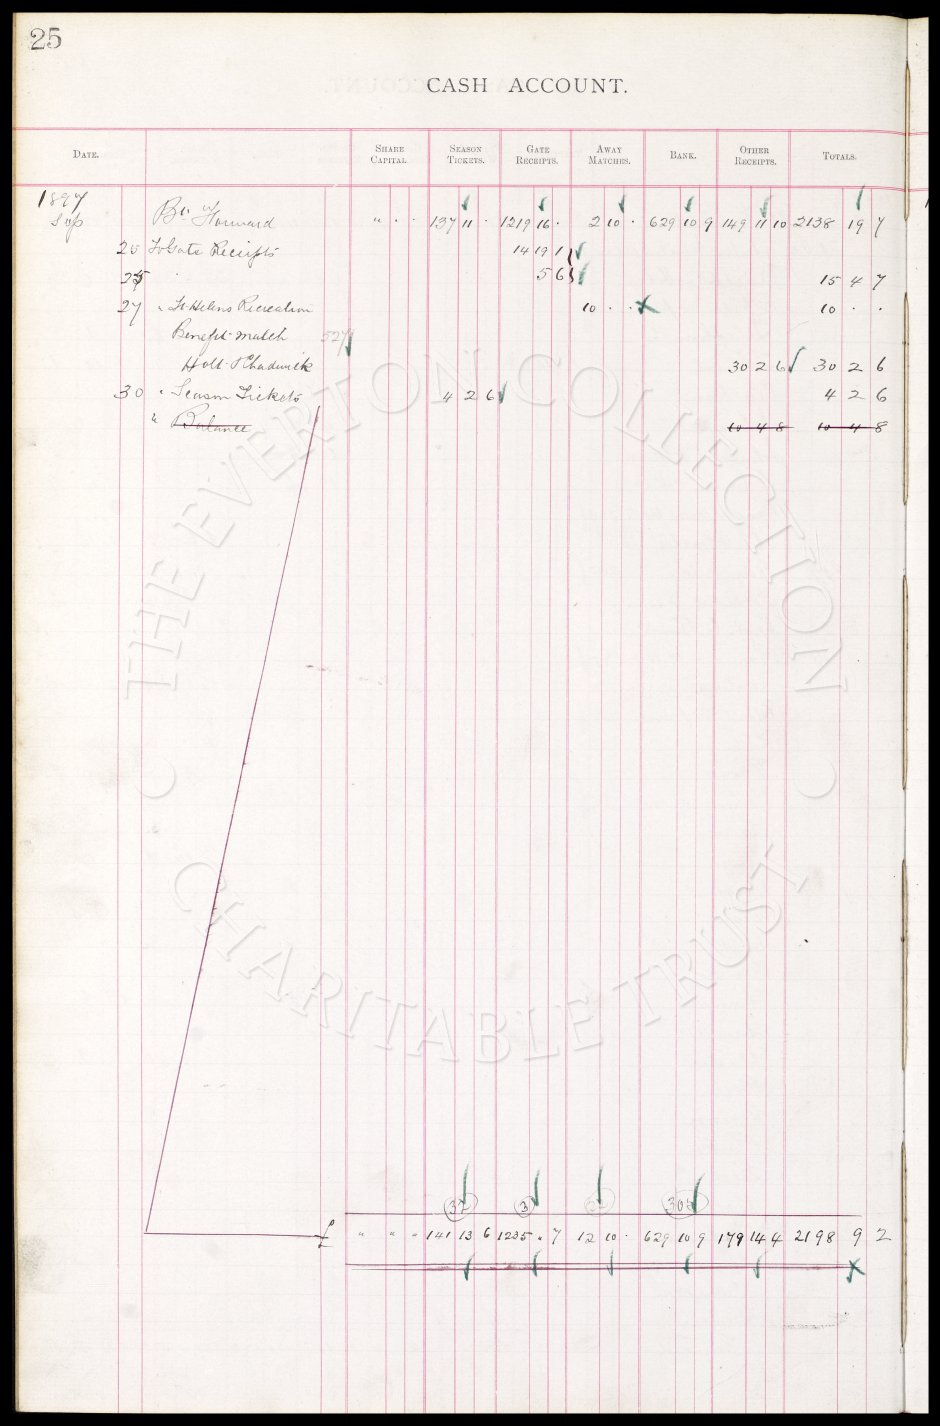 25
CASH ACCOUNT.
DATE. SHARE CAPITAL SEASON TICKETS. GATE RECEIPTS. AWAY MATCHES. BANK. OTHER RECEIPTS. TOTALS.
1897
Sep Bt Forward " . . 137 11 . 1219 16 . 2 10 . 629 10 9 149 11 10 2138 19 7
25 To Gate Receipts 14 19 1
5 6 15 4 7
27 " St Helens Recreation 10 . . 10 . .
Benefit match 527
Holt & Chadwick 30 2 6 30 2 6
30 " Season Tickets 4 2 6 4 2 6
" Balance 10 4 8 10 4 8
37 3 305
£ " " " 141 13 6 1235 " 7 12 10 . 629 10 9 179 14 4 2198 9 2
THE EVERTON COLLECTION
CHARITABLE TRUST